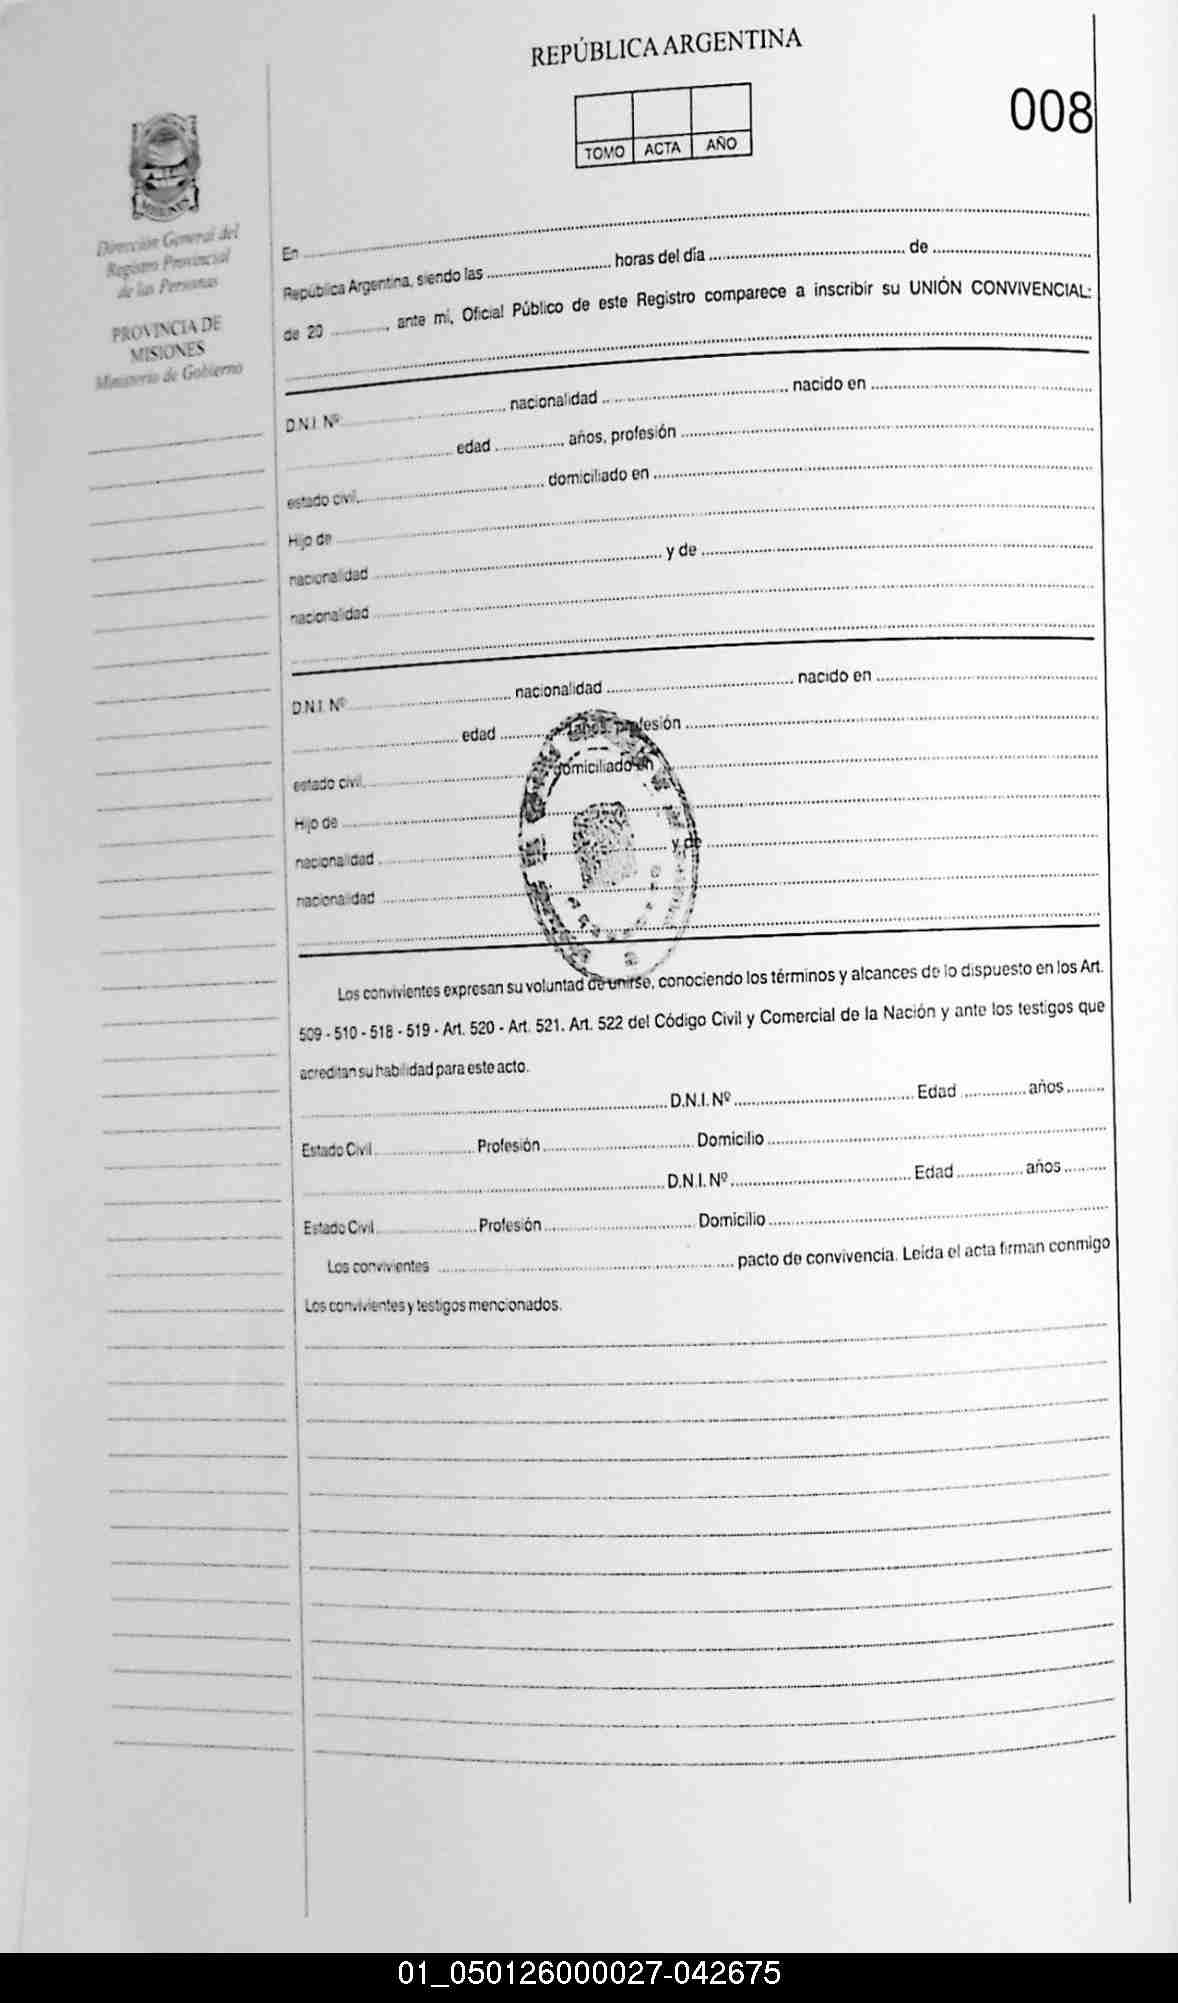 REPÚBLICA ARGENTINA
008
TOMO ACTA AÑO
MISIONES
Dirección General del
Registro Provincial
de las Personas
PROVINCIA DE
MISIONES
Ministerio de Gobierno
En
República Argentina, siendo las horas del día de
de 20 , ante mí, Oficial Público de este Registro comparece a inscribir su UNIÓN CONVIVENCIAL:
D.N.I. Nº nacionalidad nacido en
edad años, profesión
estado civil, domiciliado en
Hijo de
nacionalidad y de
nacionalidad
D.N.I. Nº nacionalidad nacido en
edad años, profesión
estado civil, domiciliado en
Hijo de
nacionalidad y de
nacionalidad
Los convivientes expresan su voluntad de unirse, conociendo los términos y alcances de lo dispuesto en los Art.
509 - 510 - 518 - 519 - Art. 520 - Art. 521. Art. 522 del Código Civil y Comercial de la Nación y ante los testigos que
acreditan su habilidad para este acto.
D.N.I. Nº Edad años
Estado Civil Profesión Domicilio
D.N.I. Nº Edad años
Estado Civil Profesión Domicilio
Los convivientes pacto de convivencia. Leída el acta firman conmigo
Los convivientes y testigos mencionados.
01_050126000027-042675